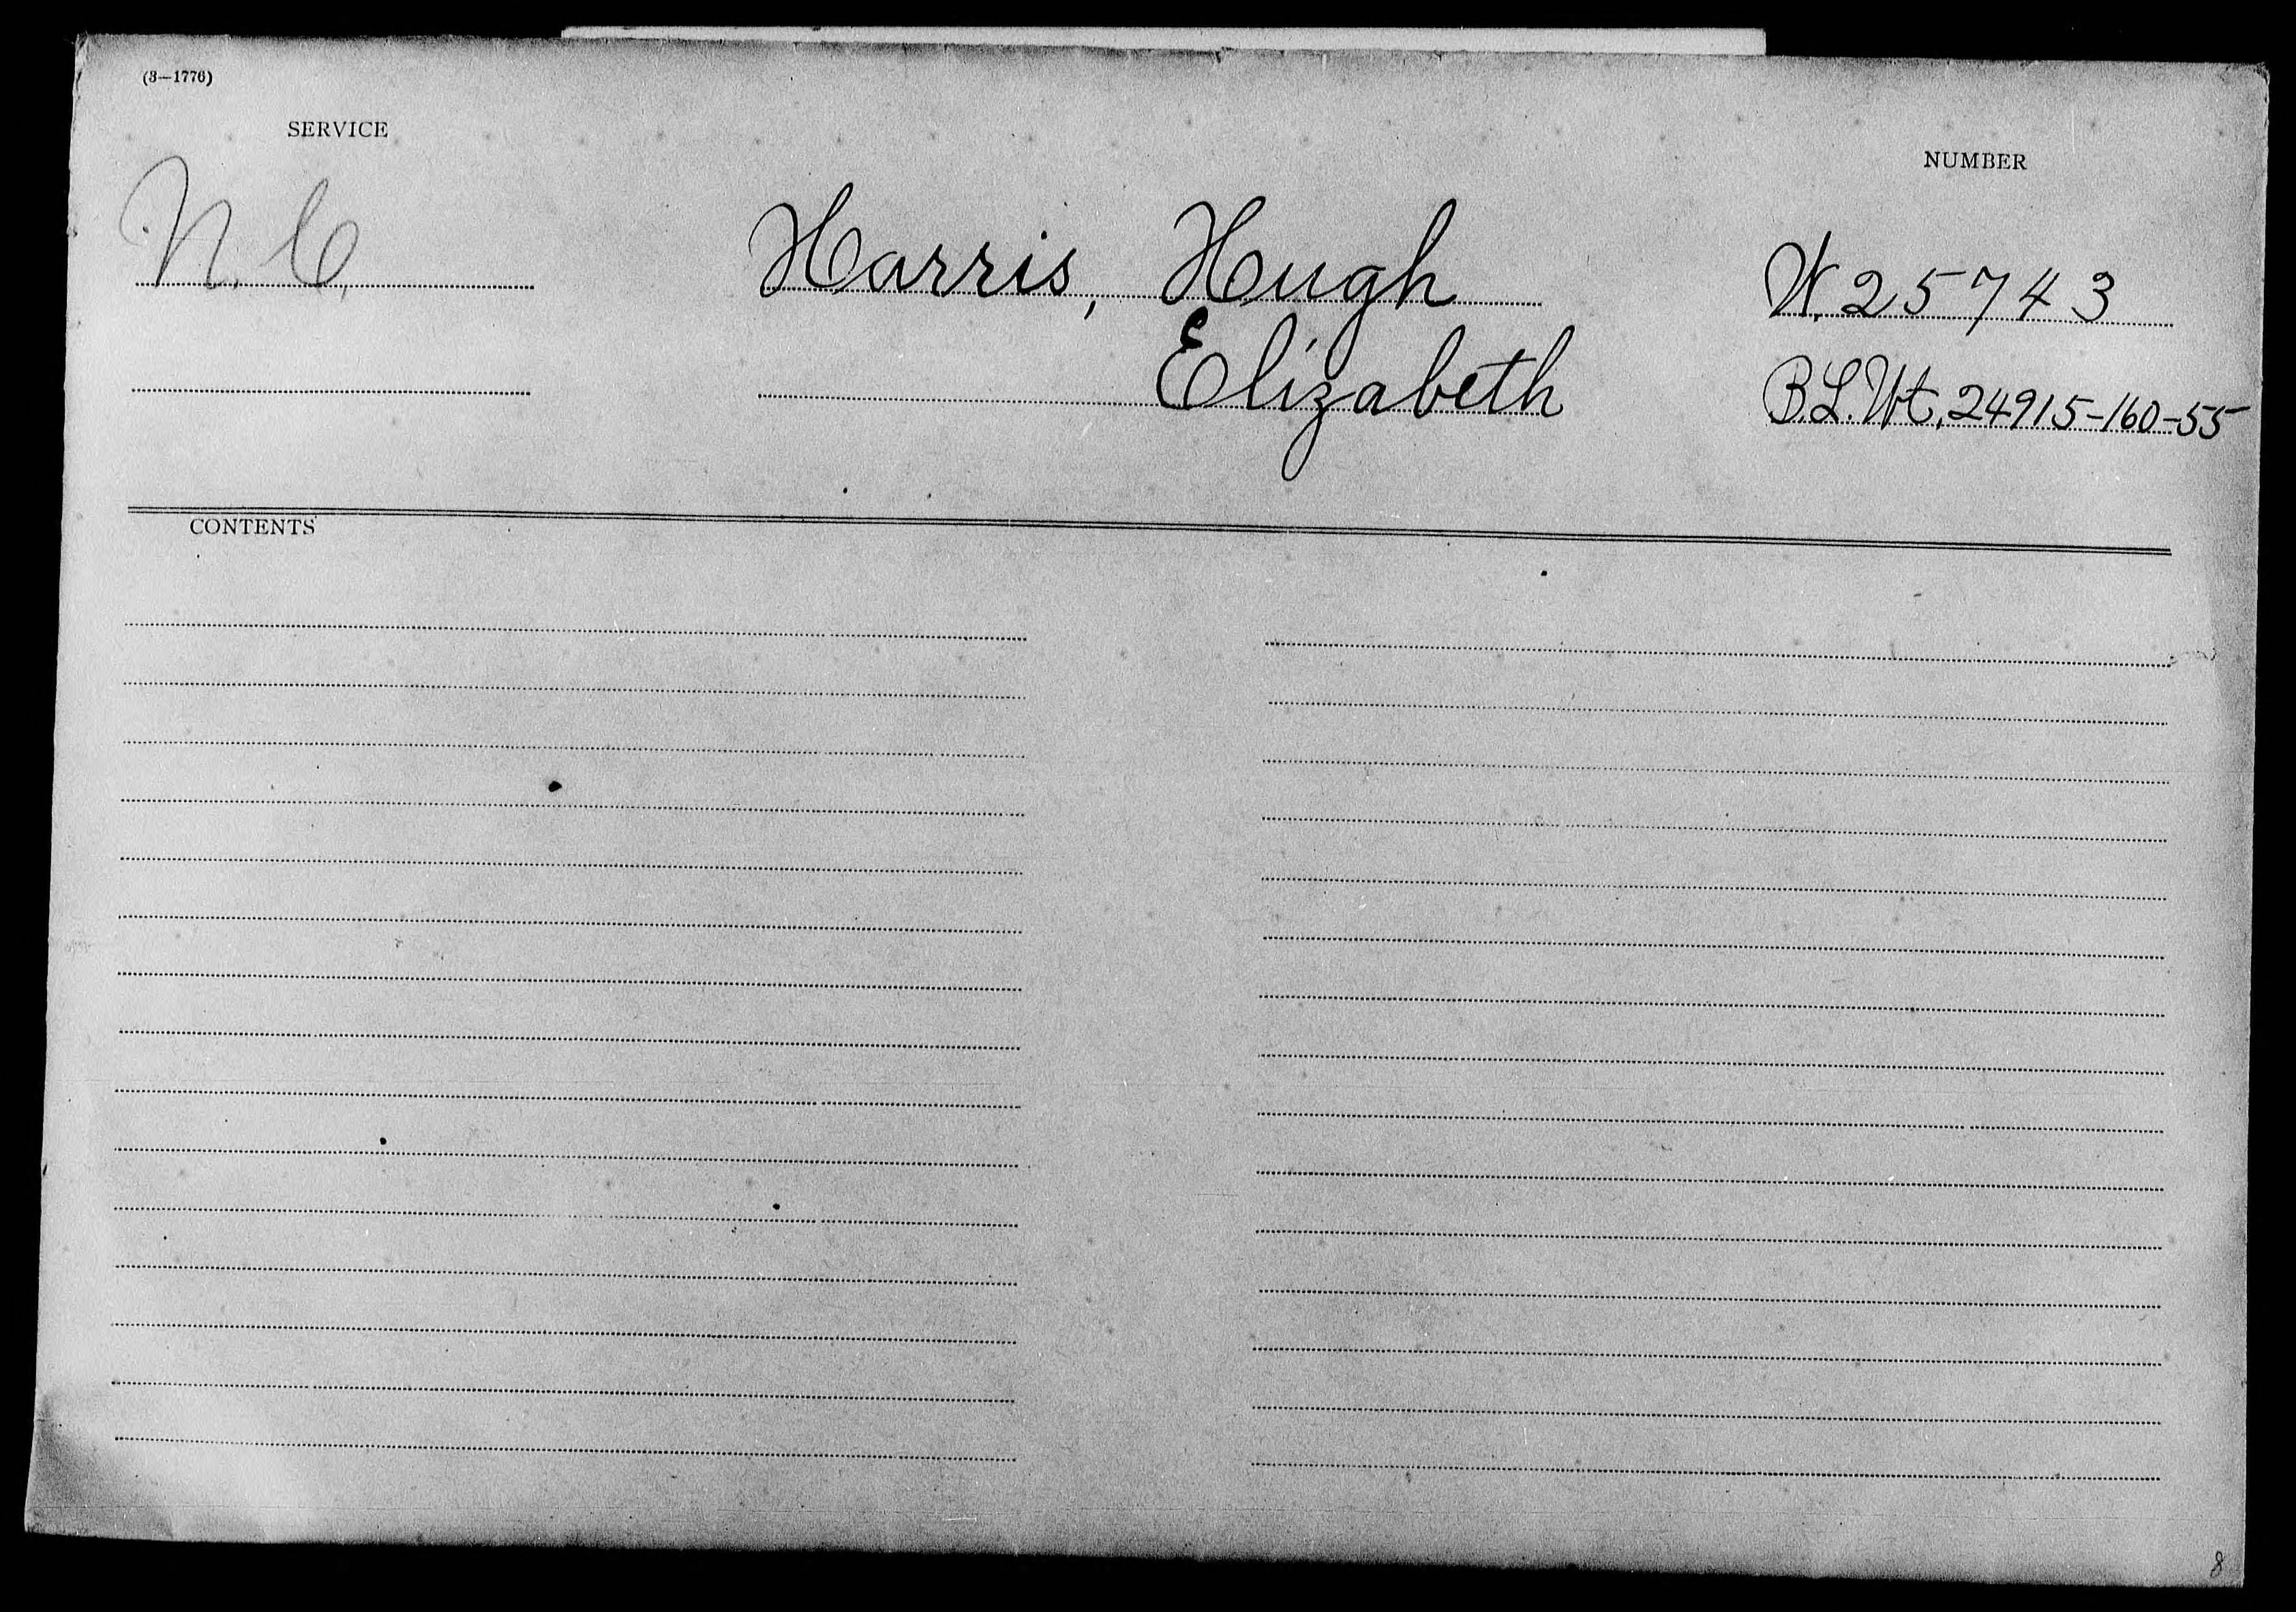 (3—1776)
SERVICE
NUMBER
N. C.
Harris, Hugh
W. 25743
Elizabeth
B.L.Wt. 24915-160-55
CONTENTS
8